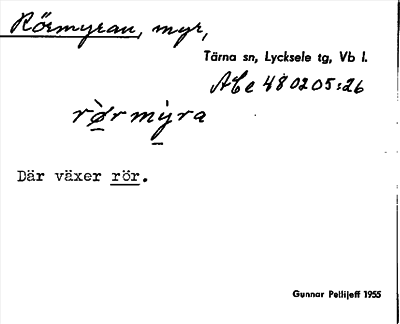 Rörmyran, myr,
Tärna sn, Lycksele tg, Vb l.
AC e 480205:26
rø̀r mýra
Där växer rör.
Gunnar Pellijeff 1955